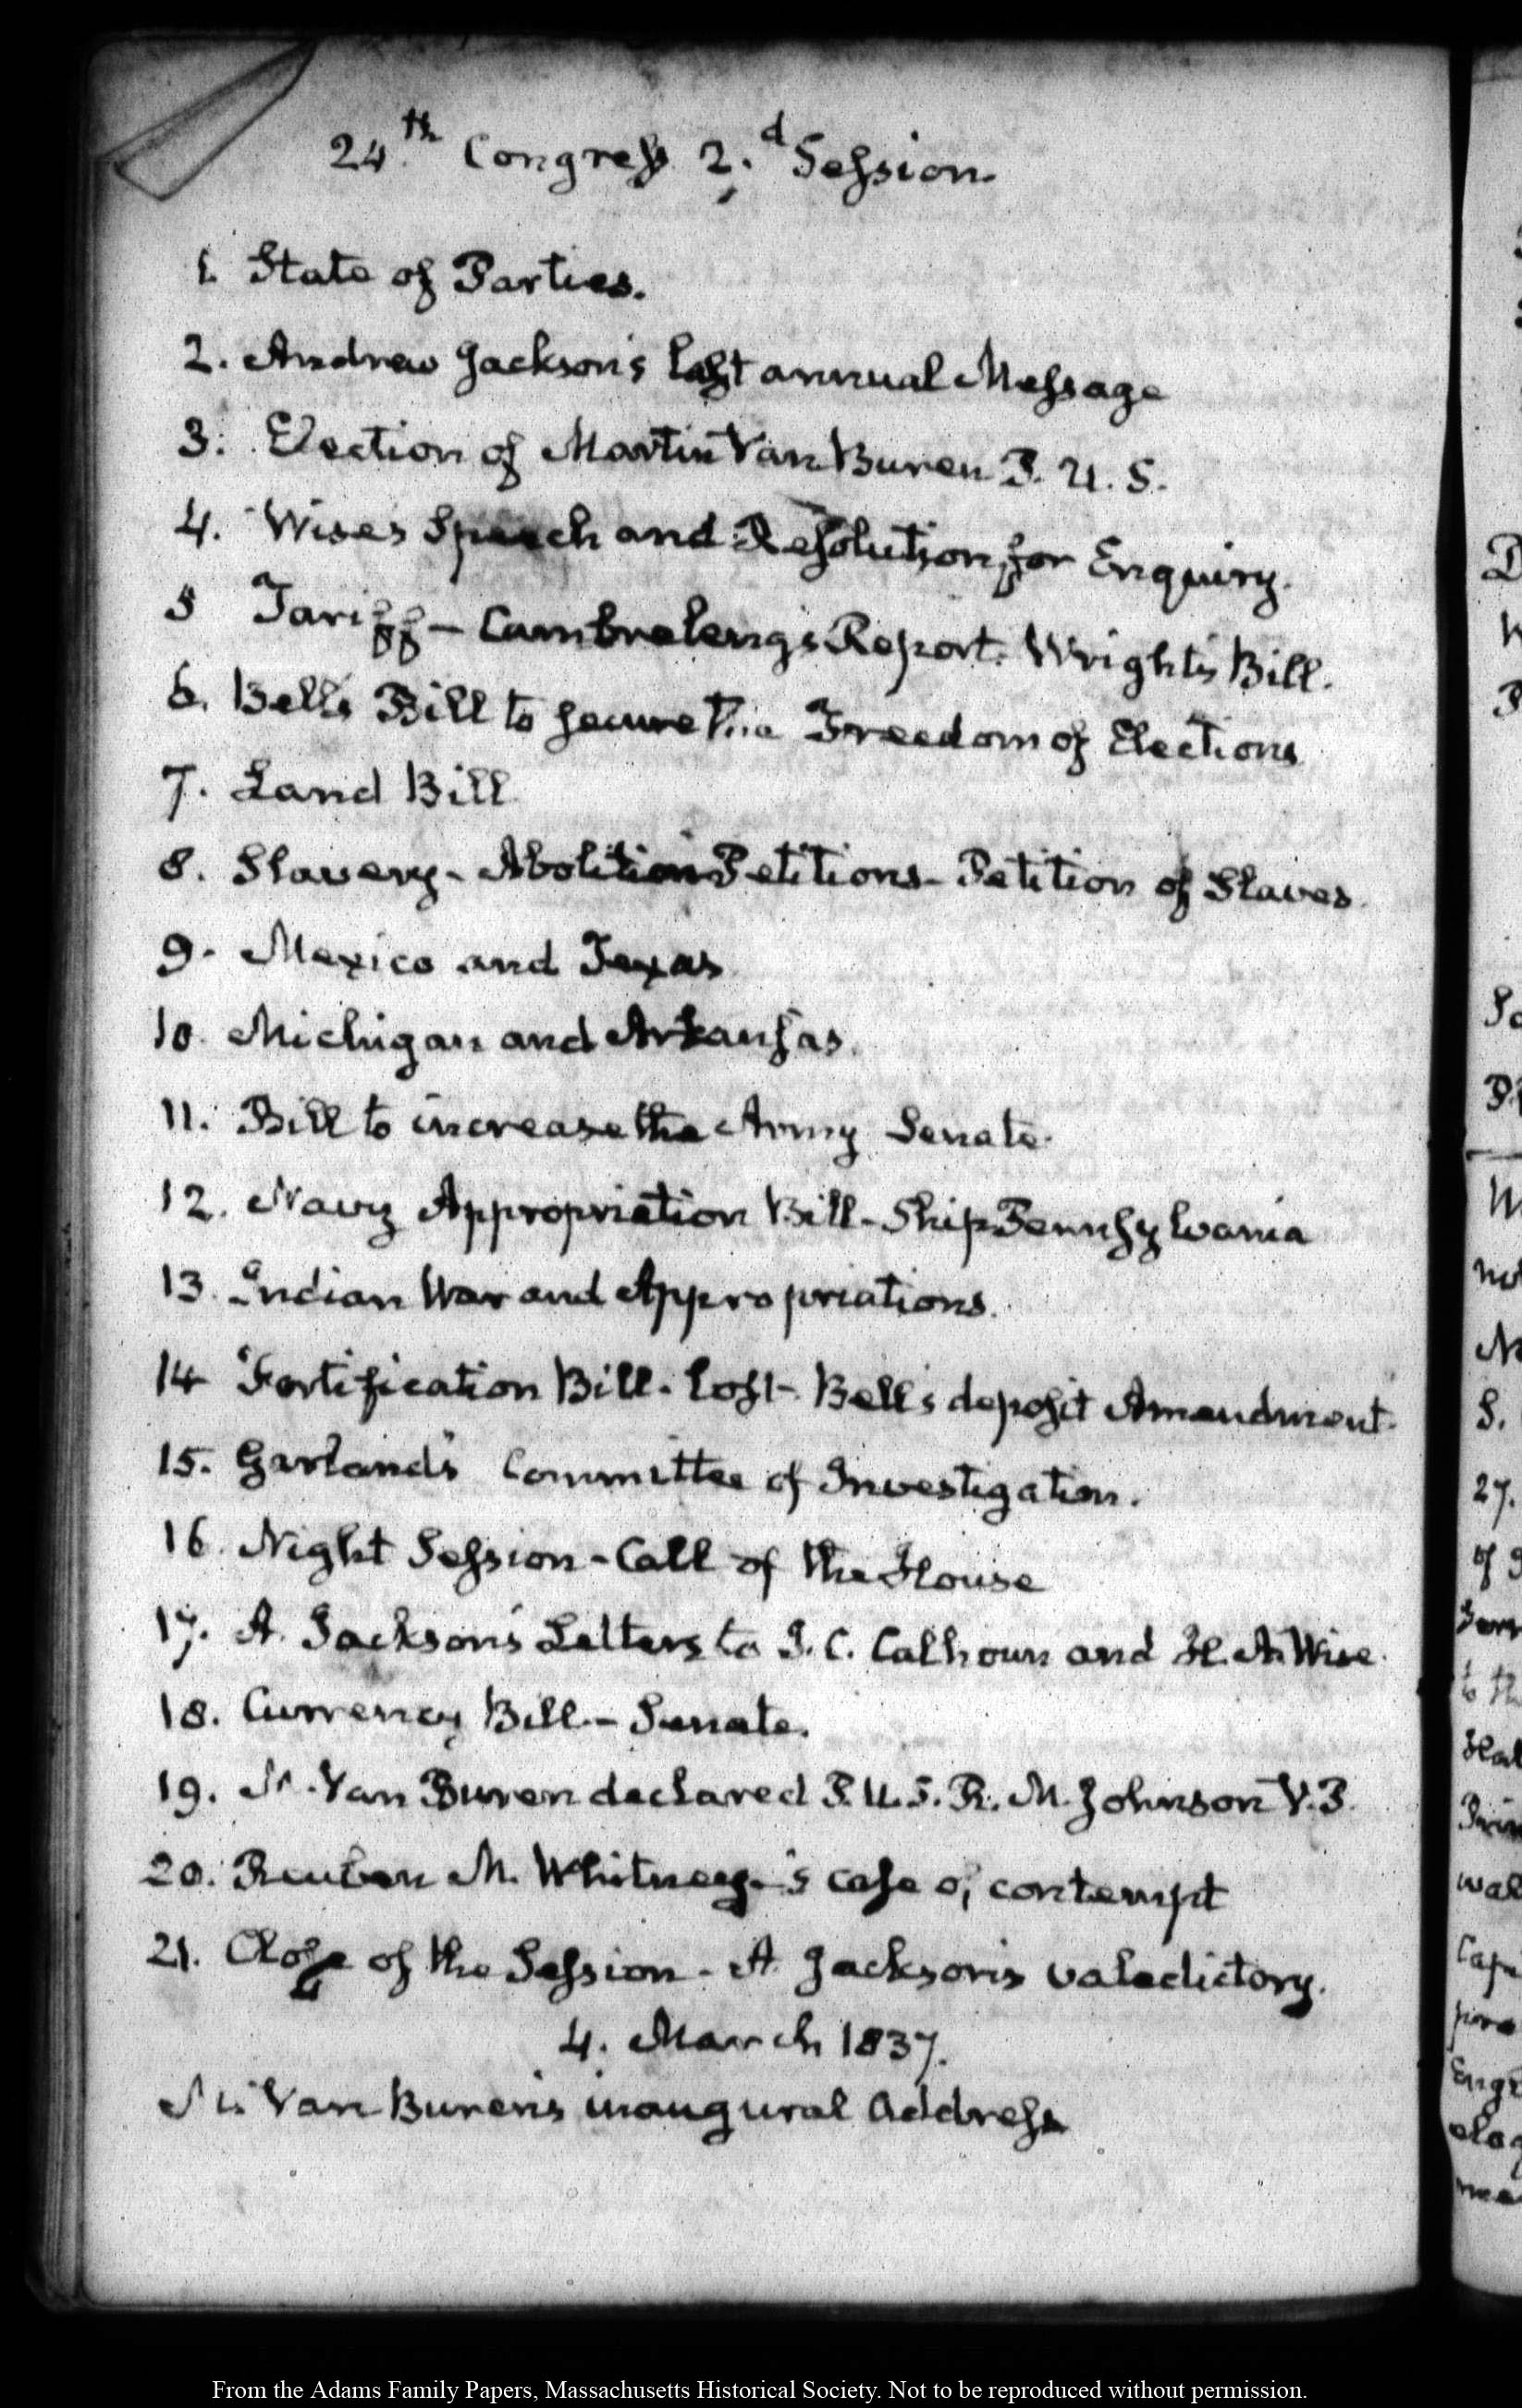 24.th Congress 2.d Session.
1. State of Parties.
2. Andrew Jackson's last annual Message
3. Election of Martin Van Buren P. U. S.
4. Wises Speech and Resolution for Enquiry.
5 Tariff — Cambreleng's Report. Wright's Bill.
6. Bell's Bill to secure the Freedom of Elections
7. Land Bill
8. Slavery - Abolition Petitions - Petition of Slaves.
9. Mexico and Texas
10. Michigan and Arkansas.
11. Bill to increase the Army Senate.
12. Navy Appropriation Bill - Ship Pennsylvania
13. Indian War and Appropriations.
14 Fortification Bill - lost - Bell's deposit Amendment.
15. Garland's Committee of Investigation.
16. Night Session - Call of the House
17. A. Jackson's Letters to J. C. Calhoun and H. A. Wise.
18. Currency Bill — Senate.
19. M. Van Buren declared P. U. S. R. M. Johnson V. P.
20. Reuben M. Whitney's case of contempt
21. Close of the Session - A. Jackson's valedictory.
4. March 1837.
Mr. Van Buren's inaugural Address
From the Adams Family Papers, Massachusetts Historical Society. Not to be reproduced without permission.